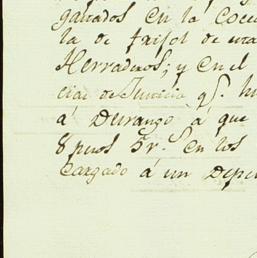 ganados en la Coci
la de frijol de una
Herraduos; y en el
cias de Justicia q.e hu
á Durango á que
8 pesos 5r. en los
Cargado á un Depen